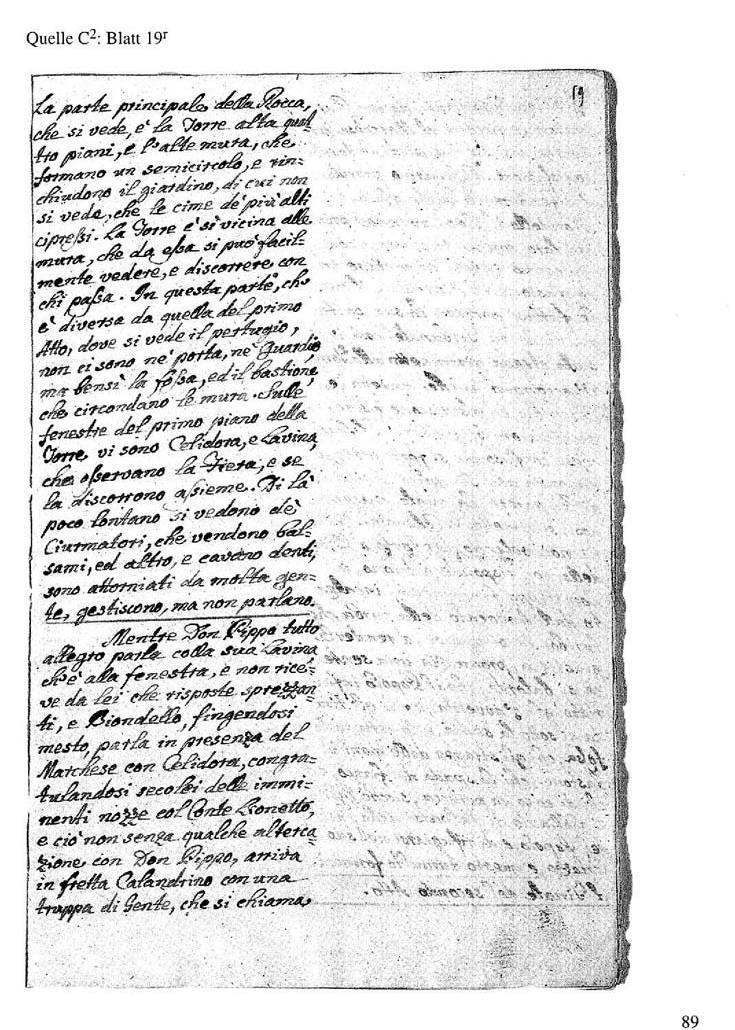 Quelle C²: Blatt 19ʳ
19
La parte principale della Rocca,
che si vede, è la Torre alta quat=
tro piani, e l'alte mura, che
formano un semicircolo, e rin=
chiudono il giardino, di cui non
si vede, che le cime de' più alti
cipressi. La Torre è sì vicina alle
mura, che da essa si può facil=
mente vedere, e discorrere con
chi passa. In questa parte, che
è diversa da quella del primo
Atto, dove si vede il pertugio,
non ci sono nè porta, nè Guardie
ma bensì la fossa, ed il bastione,
che circondano le mura. Sulle
fenestre del primo piano della
Torre vi sono Celidora, e Lavina,
che osservano la Fiera, e se
la discorrono assieme. Di là
poco lontano si vedono de'
Ciurmatori, che vendono bal=
sami, ed altro, e cavano denti,
sono attorniati da molta gen=
te, gestiscono, ma non parlano.
Mentre Don Pippo tutto
allegro parla colla sua Lavina,
ch'è alla fenestra, e non rice=
ve da lei che risposte sprezzan
ti, e Biondello, fingendosi
mesto, parla in presenza del
Marchese con Celidora, congra=
tulandosi seco lei delle immi=
nenti nozze col Conte Lionetto,
e ciò non senza qualche alterca
zione con Don Pippo, arriva
in fretta Calandrino con una
truppa di Gente, che si chiama
89